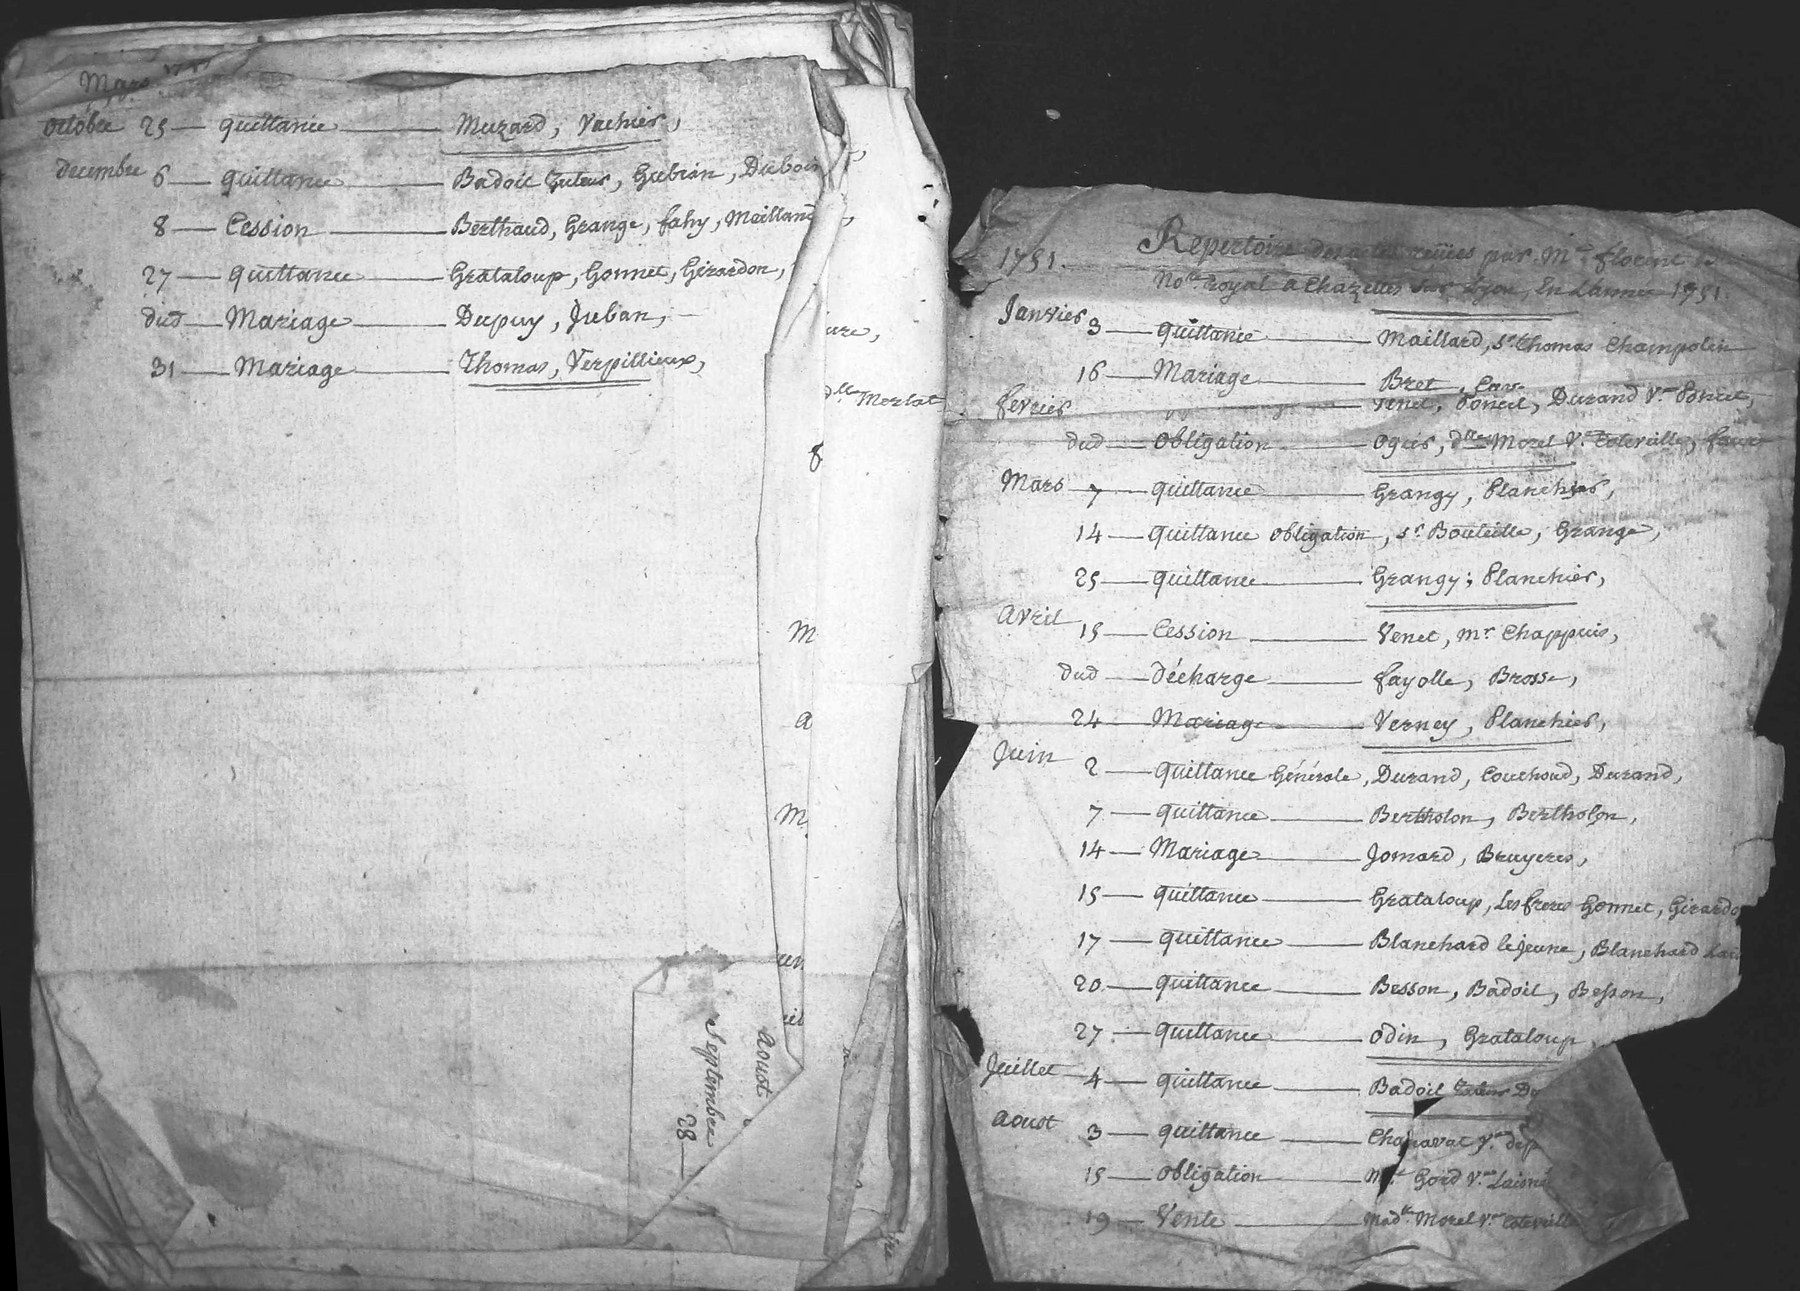 Mars
Octobre 25 — quittance — Muzard, Vachier,
decembre 6 — quittance — Badoil tuteur, Gubian, Dubois
8 — Cession — Berthaud, Grange, fahy, Meilland
27 — quittance — Grataloup, Gonnet, Girardon,
dud — Mariage — Dupuy, Juban,
31 — Mariage — Thomas, Verpillieux,
ure,
dlle Merlat
f
M
a
M
Aoust
Septembre
28 —
1751. Repertoire des actes reçües par Me florent
Nore royal a Chazelles sur Lyon, En Lannee 1751.
Janvier 3 — quittance — Maillard, sr thomas Champolin
16 — Mariage — Bret,
fevrier — Venet, Poncet, Durand Ve Poncet,
dud — obligation — Ogier, dlle Morel Ve Coteville, faure
Mars 7 — quittance — Grangy, Planchier,
14 — quittance obligation, sr Bouteille, Grange,
25 — quittance — Grangy; Planchier,
Avril 15 — Cession — Venet, mr Chappuis,
dud — décharge — fayolle, Brosse,
24 — Mariage — Verney, Planchier,
Juin 2 — quittance Générale, Durand, Couchoud, Durand,
7 — quittance — Bertholon, Bertholon,
14 — Mariage — Jomard, Bruyeres,
15 — quittance — Grataloup, Les freres Gonnet, Girardo
17 — quittance — Blanchard le jeune, Blanchard Lai
20 — quittance — Besson, Badoil, Besson,
27 — quittance — Odin, Grataloup,
Juillet 4 — quittance — Badoil tuteur Du
Aoust 3 — quittance — Chanavat Ve
15 — obligation — Gord Ve
19 — Vente — Madlle Morel Ve Coteville